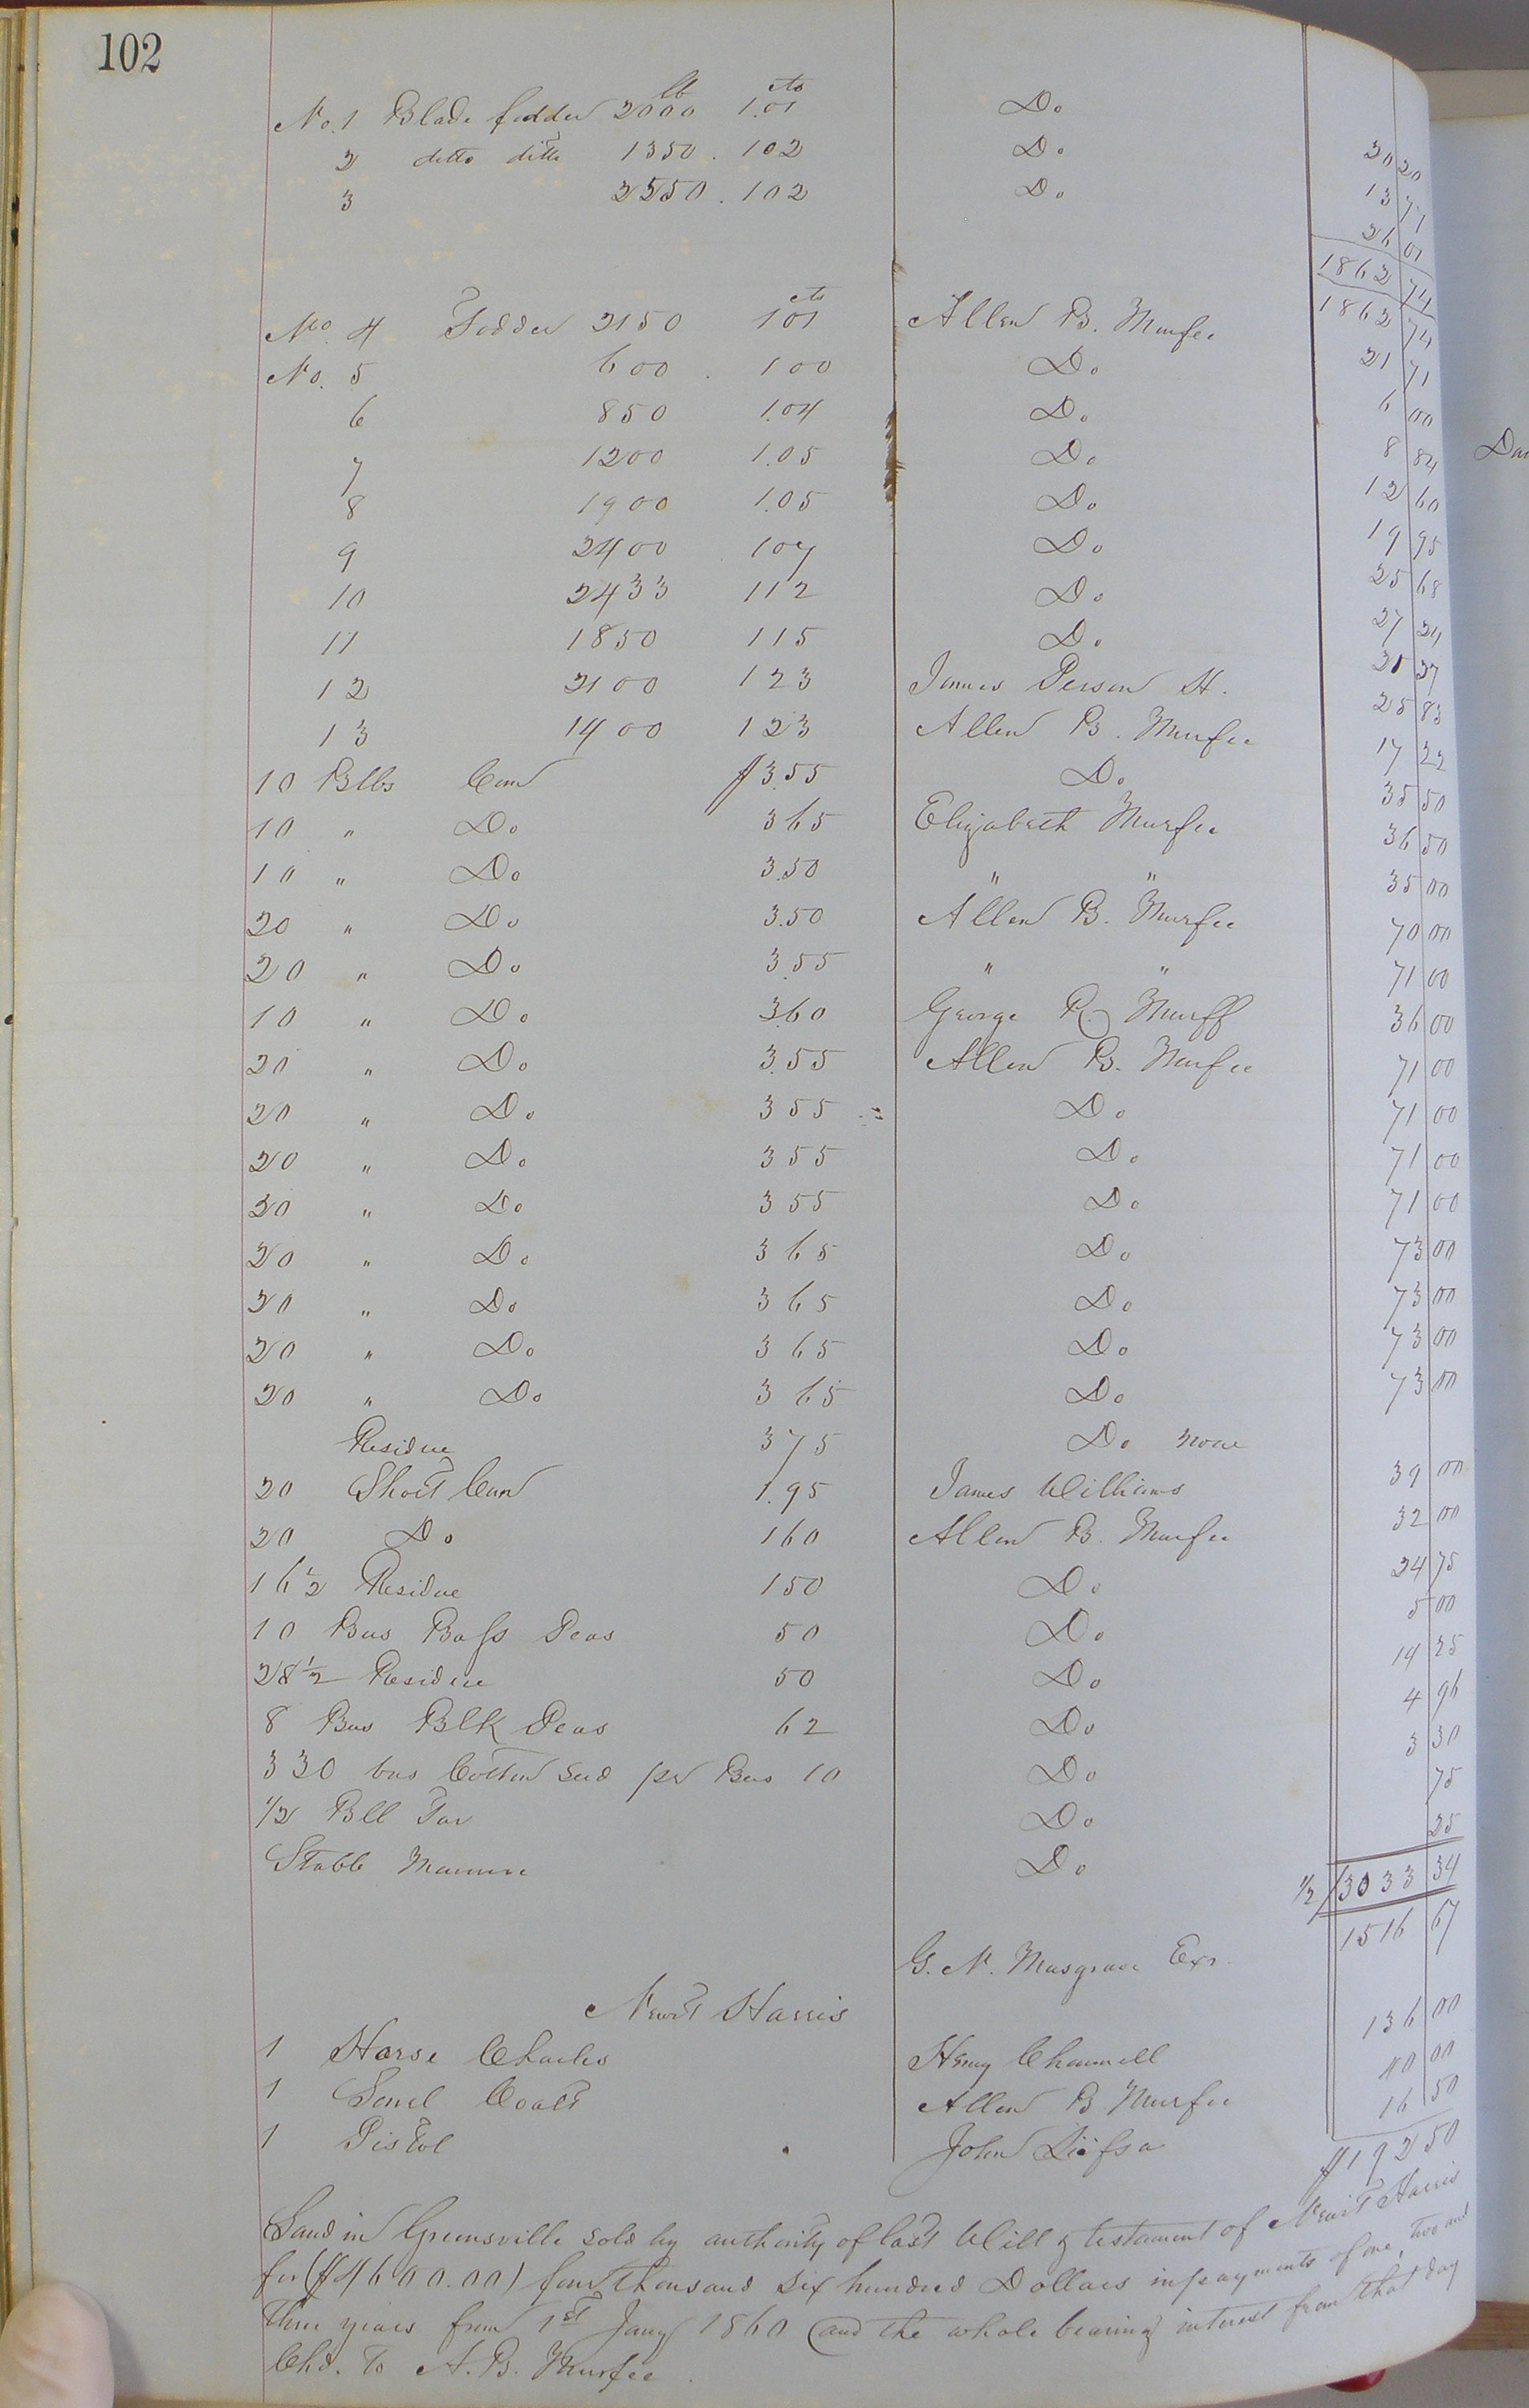 102
No. 1 Blade fodder 2000 lb 1.01 cts Do 20 20
2 ditto ditto 1350 . 102 Do 13 77
3 2550 . 102 Do 26 01
1862 74
1862 74
No. 4 Fodder 2150 101 cts Allen B. Murfee 21 71
No. 5 600 . 100 Do 6 00
6 850 1.04 Do 8 84
7 1200 1.05 Do 12 60
8 1900 1.05 Do 19 95
9 2400 107 Do 25 68
10 2433 112 Do 27 24
11 1850 115 Do 21 27
12 2100 123 James Person H. 25 83
13 1400 123 Allen B. Murfee 17 22
10 Blbs Corn $3.55 Do 35 50
10 " Do 365 Elizabeth Murfee 36 50
10 " Do 3.50 " " 35 00
20 " Do 3.50 Allen B. Murfee 70 00
20 " Do 3.55 " " 71 00
10 " Do 3.60 George R. Murff 36 00
20 " Do 3.55 Allen B. Murfee 71 00
20 " Do 355 Do 71 00
20 " Do 355 Do 71 00
20 " Do 355 Do 71 00
20 " Do 365 Do 73 00
20 " Do 365 Do 73 00
20 " Do 365 Do 73 00
20 " Do 365 Do 73 00
Residue 375 Do none
20 Short Corn 1.95 James Williams 39 00
20 Do 160 Allen B. Murfee 32 00
16 1/2 Residue 150 Do 24 75
10 Bus Bass Peas 50 Do 5 00
28 1/2 Residue 50 Do 14 25
8 Bus Blk Peas 62 Do 4 96
330 bus Cotton seed per Bus 10 Do 3 30
1/2 Bll Tar Do 75
Stable Manure Do 25
1/2 3033 34
1516 67
G. N. Musgrave Exr.
Newit Harris
1 Horse Charles Henry Chammell 136 00
1 Sorrel Coalt Allen B Murfee 40 00
1 Pistol John 16 50
$192 50
Land in Greensville sold by authority of last Will & testament of Newit Harris
for ($4600.00) four thousand six hundred Dollars in payments of one, two and
three years from 1st Jany 1860 (and the whole bearing interest from that day
Chd. To A. B. Murfee.